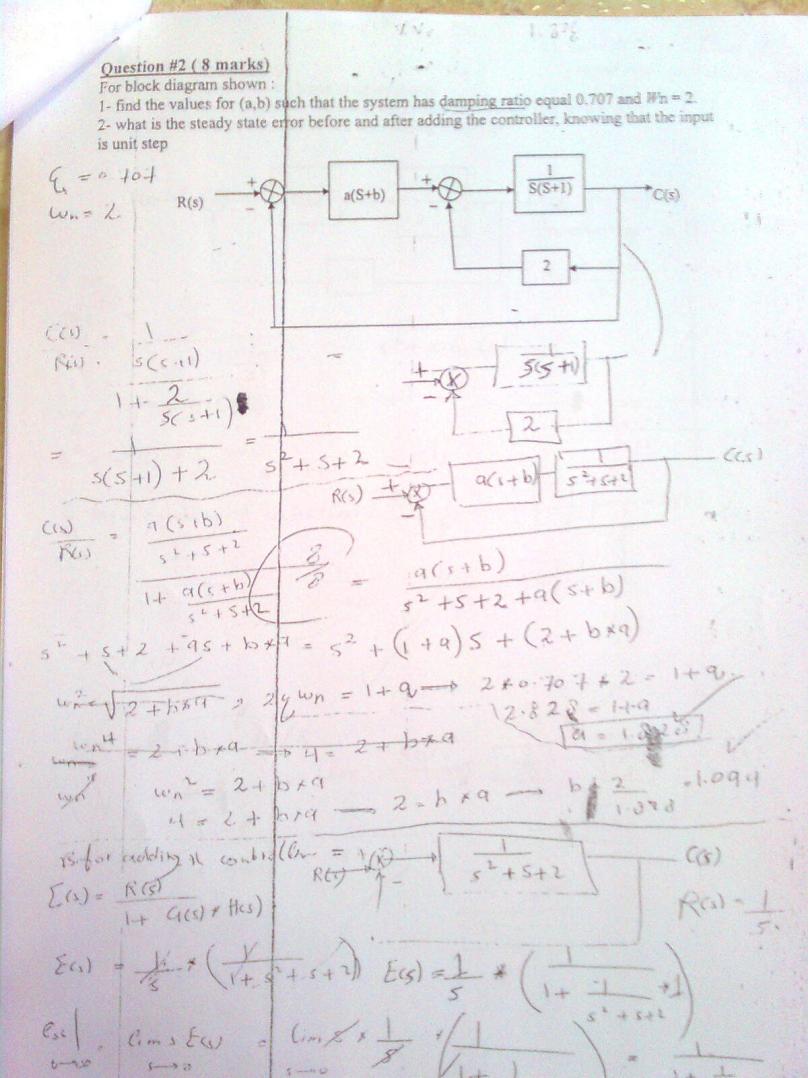 Question #2 ( 8 marks)
For block diagram shown :
1- find the values for (a,b) such that the system has damping ratio equal 0.707 and Wn = 2.
2- what is the steady state error before and after adding the controller, knowing that the input
is unit step
ξ = 0.707
ωn = 2
R(s) + − a(S+b) + − 1/S(S+1) C(s)
2
C(s)/R(s) = (1/s(s+1)) / (1 + 2/s(s+1)) =
+ − 1/S(S+1)
2
= 1/(s(s+1)+2) = 1/(s²+s+2)
R(s) + − a(s+b) 1/(s²+s+2) C(s)
C(s)/R(s) = (a(s+b)/(s²+s+2)) / (1 + a(s+b)/(s²+s+2)) = a(s+b)/(s²+s+2+a(s+b))
8/8
s² + s + 2 + as + b*a = s² + (1+a)s + (2+b*a)
ωn = √(2+b*a) , 2ξωn = 1+a → 2*0.707*2 = 1+a
2.828 = 1+a
a = 1.828
= 2+b*a ⟹ 4 = 2+b*a
ωn² = 2+b*a
4 = 2+b*a → 2 = b*a → b = 2/1.828 = 1.094
adding = R(s) + − 1/(s²+s+2) C(s)
E(s) = R(s)/(1+G(s)*H(s))
R(s) = 1/s
E(s) = 1/s * (1/(1+s²+s+2)) E(s) = 1/s * (1/(1 + 1/(s²+s+2) *1))
ess| = lim s E(s) = lim s * 1/s * (1/ =
s→0